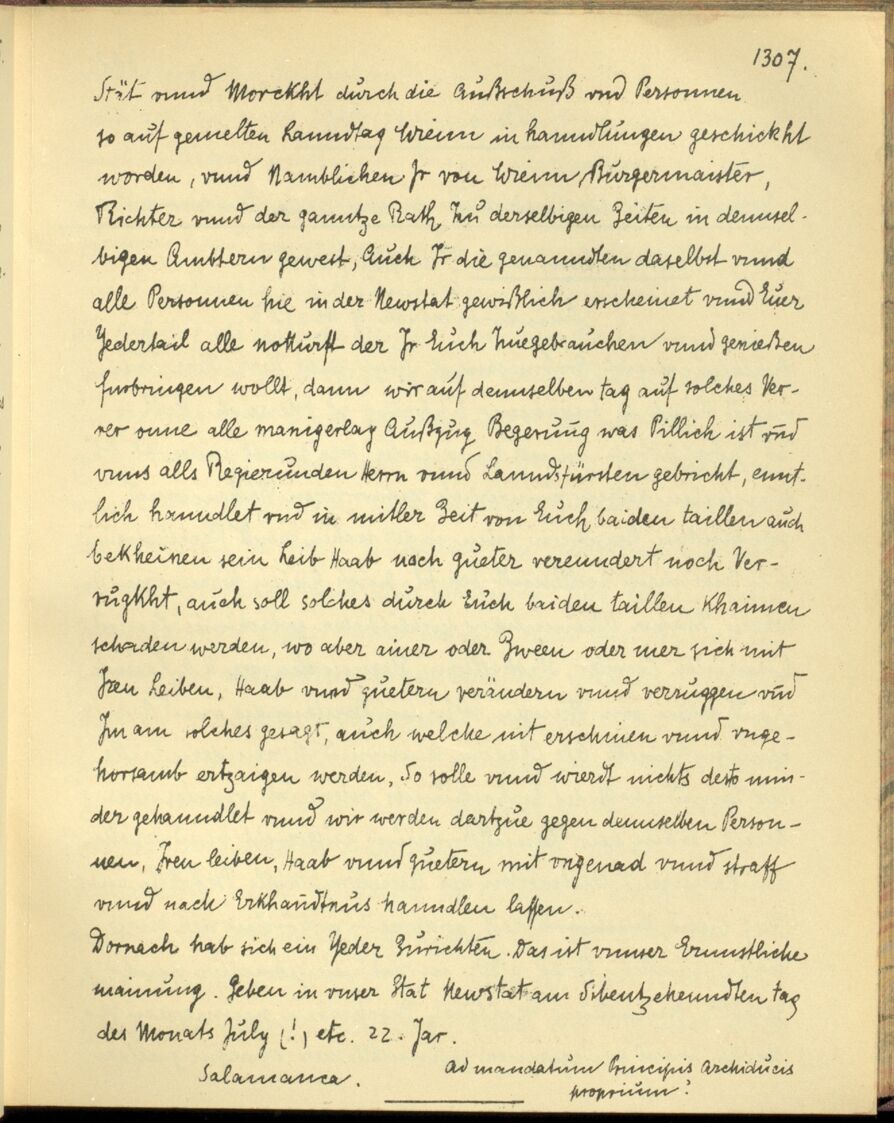 1307.
Stät vnnd Morckht durch die Außschuß vnd Personnen
so auf gemelten Lanndtag Wienn in hanndlungen geschickht
worden, vnnd Namblichen Jr von Wienn, Burgermaister,
Richter vnnd der ganntze Rath zu derselbigen Zeiten in dennsel-
bigen Ambtern gewest, Auch Jr die genanndten daselbst vnnd
alle Personnen hie in der Newstat gewißlich erscheinet vnnd Euer
Yedertail alle notturft der Jr Euch zuegebrauchen vnnd genießen
furbringen wollt, dann wir auf dennselben tag auf solches Ver-
rer onne alle manigerlay Außzug Begerung was Pillich ist vnd
vnns alls Regierunden Herrn vnnd Lanndsfürsten gebricht, ennt-
lich hanndlet vnd in mitler Zeit von Euch baiden taillen auch
bekheinen sein Leib Haab noch gueter verenndert noch Ver-
rugkht, auch soll solches durch Euch baiden taillen Khainen
schaden werden, wo aber ainer oder Zween oder mer sich mit
Jren Leiben, Haab vnnd guetern verändern vnnd verruggen vnd
Jm am solches gesagt, auch welche nit erschinen vnnd vnge-
horsamb ertzaigen werden, So solle vnnd wierdt nichts desto min-
der gehanndlet vnnd wir werden dartzue gegen dennselben Person-
nen, Jren leiben, Haab vnnd guetern mit vngenad vnnd straff
vnnd nach Erkhandtnus hanndlen lassen.
Dornach hab sich ein Yeder Zurichten. Das ist vnnser Ernnstliche
mainung. Geben in vnser Stat Newstat am Sibentzehenndten tag
des Monats July (!) etc. 22. Jar.
Salamanca.
Ad mandatum Principis Archiducis
proprium.